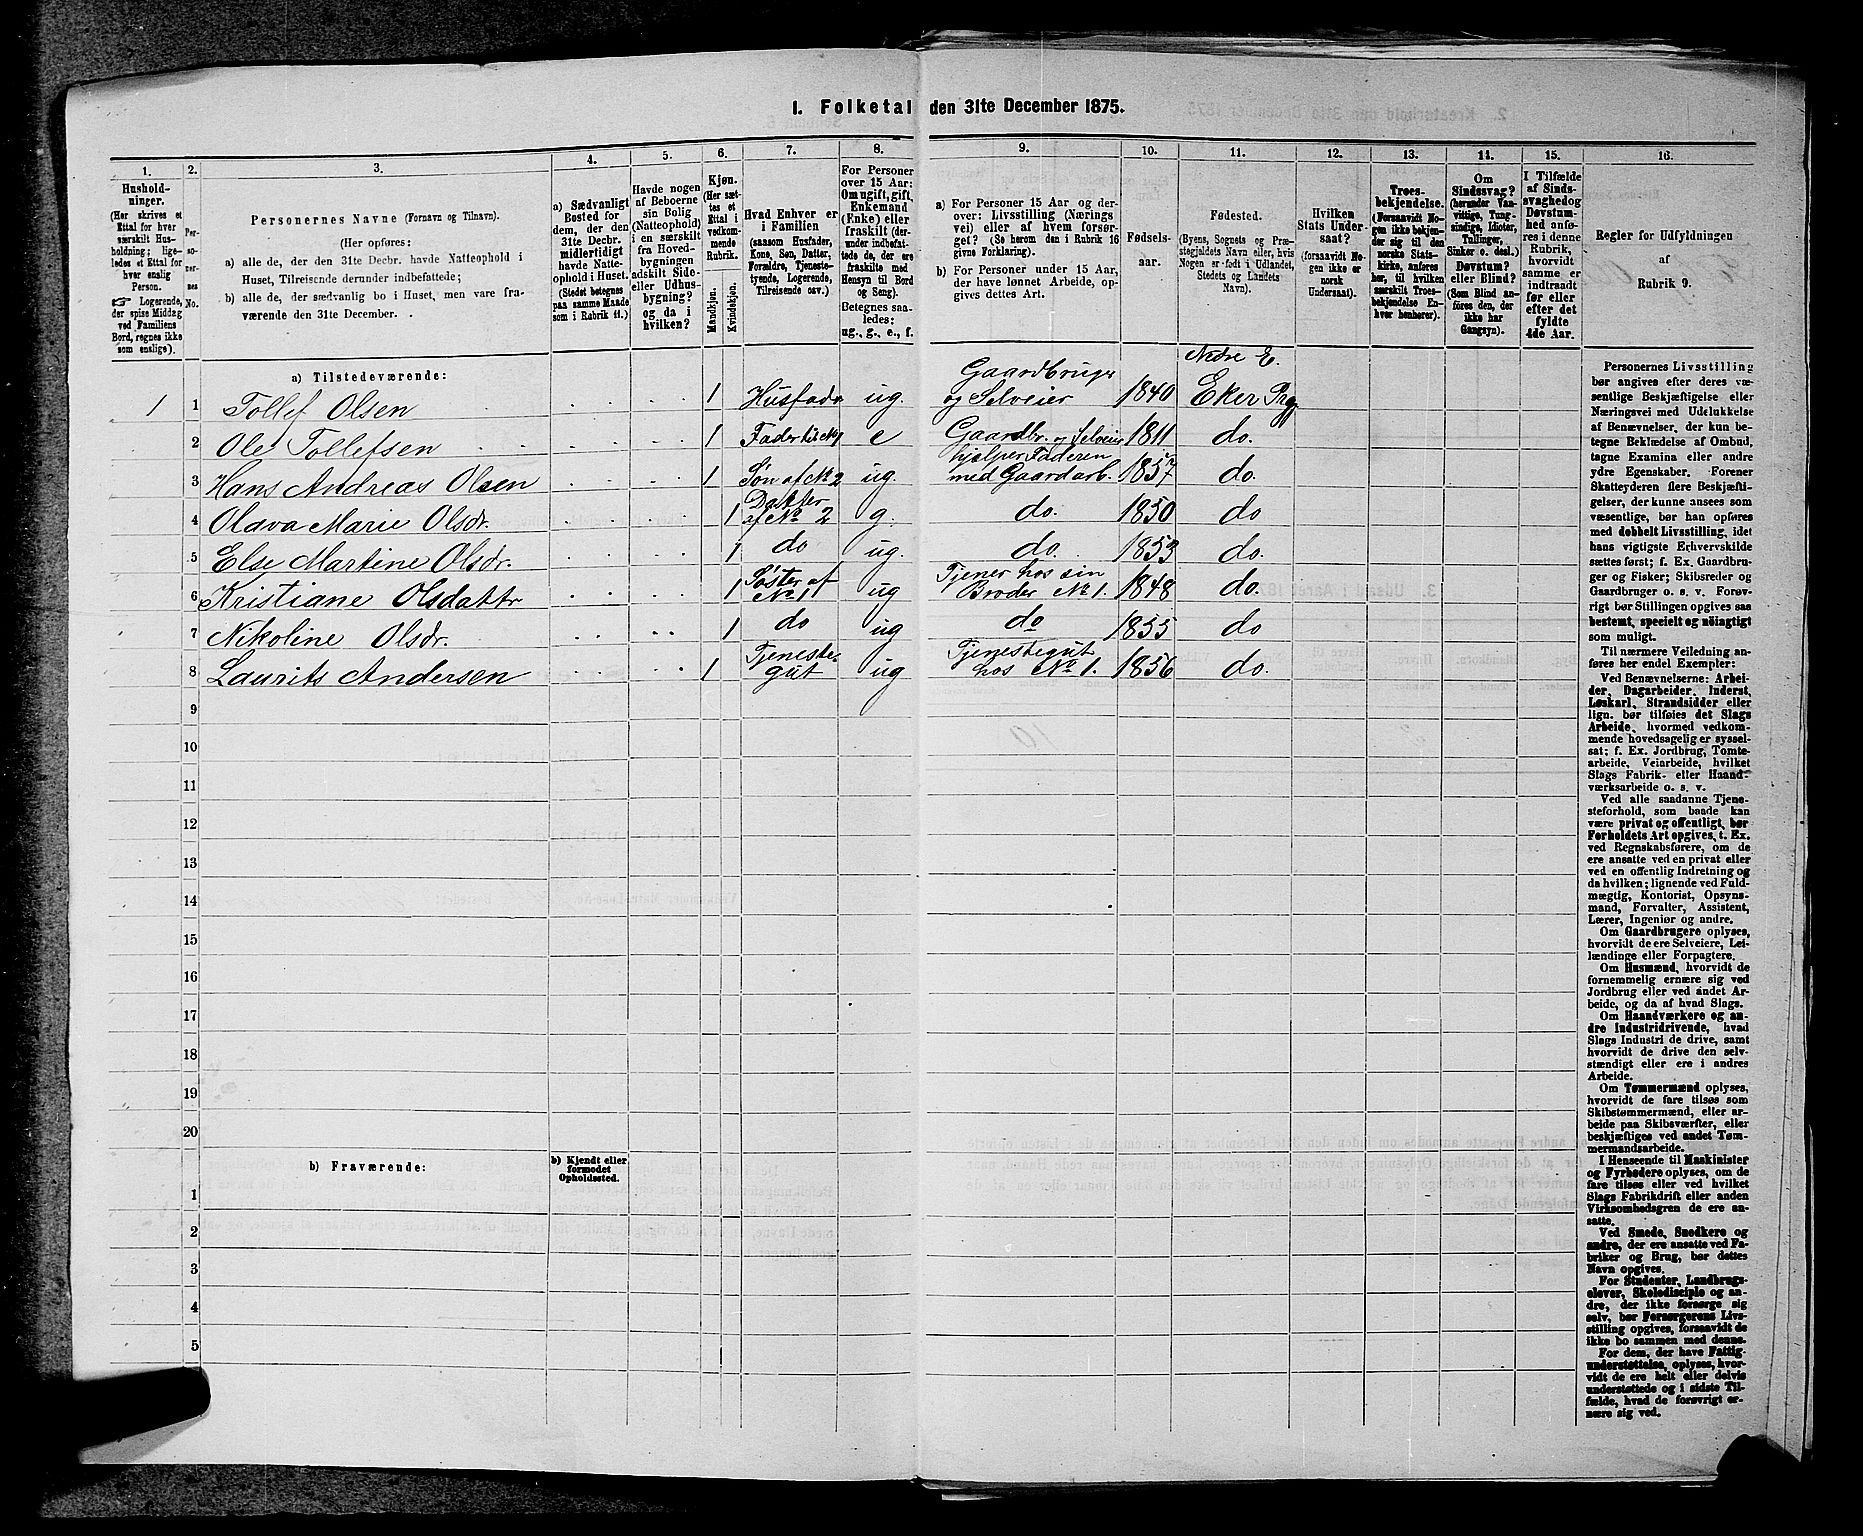 1. Folketal den 31te December 1875.
1. 2. 3. 4. 5. 6. 7. 8. 9. 10. 11. 12. 13. 14. 15. 16.
Hushold-
ninger.
(Her skrives et
Ettal for hver
særskilt Hus-
holdning; lige-
ledes et Ettal for
hver enslig
Person.
☞ Logerende,
der spise Middag
ved Familiens
Bord, regnes ikke
som enslige).
Per-
so-
ner-
nes
No.
Personernes Navne (Fornavn og Tilnavn).
(Her opføres:
a) alle de, der den 31te Decbr. havde Natteophold i
Huset, Tilreisende derunder indbefattede;
b) alle de, der sædvanlig bo i Huset, men vare fra-
værende den 31te December.
a) Sædvanligt
Bosted for
dem, der den
31te Decbr.
midlertidigt
havde Natte-
ophold i Huset.
(Stedet betegnes
paa samme Maade
som i Rubrik 11.)
Havde nogen
af Beboerne
sin Bolig
(Natteophold)
i en særskilt
fra Hoved-
bygningen
adskilt Side-
eller Udhus-
bygning?
og da i
hvilken?
Kjøn.
(Her sæt-
tes et
Ettal i
vedkom-
mende
Rubrik.
Mandkjøn.
Kvindekjøn.
Hvad Enhver er
i Familien
(saasom Husfader,
Kone, Søn, Datter,
Forældre, Tjeneste-
tyende, Logerende,
Tilreisende osv.)
For Personer
over 15 Aar:
Om ugift, gift,
Enkemand
(Enke) eller
fraskilt (der-
under indbefat-
tede de, der ere
fraskilte med
Hensyn til Bord
og Seng).
Betegnes saa-
ledes:
ug., g., e., f.
a) For Personer 15 Aar og der-
over: Livsstilling (Nærings-
vei) eller af hvem forsør-
get? (Se herom den i Rubrik 16
givne Forklaring).
b) For Personer under 15 Aar,
der have lønnet Arbeide, op-
gives dettes Art.
Fødsels-
aar.
Fødested.
(Byens, Sognets og Præ-
stegjældets Navn eller, hvis
Nogen er født i Udlandet,
Stedets og Landets
Navn).
Hvilken
Stats Under-
saat?
(forsaavidt No-
gen ikke er
norsk
Undersaat).
Troes-
bekjendelse.
(Forsaavidt No-
gen ikke bekjen-
der sig til den
norske Stats-
kirke, anføres
her, til hvilken
særskilt Troes-
bekjendelse En-
hver henhører).
Om
Sindssvag?
(herunder Van-
vittige, Tung-
sindige, Idioter,
Tullinger,
Sinker o. desl.)
Døvstum?
eller Blind?
(Som Blind an-
føres den, der
ikke har
Gangsyn).
I Tilfælde
af Sinds-
svaghed og
Døvstum-
hed anfø-
res i denne
Rubrik,
hvorvidt
samme er
indtraadt
før eller
efter det
fyldte
4de Aar.
Regler for Udfyldningen
af
Rubrik 9.
a) Tilstedeværende:
1 1 Tollef Olsen 1 Husfader ug. Gaardbruger og Selveier 1840 Nedre E. Eker Prgj
2 Ole Tollefsen 1 Fader til No 1 e Gaardbr. og Selveier 1811 do.
3 Hans Andreas Olsen 1 Søn af No 2 ug. hjælper Faderen med Gaardarb. 1857 do.
4 Olava Marie Olsdr. 1 Datter af No 2 g. do. 1850 do
5 Else Martine Olsdr. 1 do ug. do. 1853 do.
6 Kristiane Olsdattr 1 Søster af No 1 ug Tjener hos sin Broder No 1. 1848 do.
7 Nikoline Olsdr. 1 do ug do 1855 do
8 Laurits Andersen 1 Tjeneste- gut ug Tjenestegut hos No 1. 1856 do.
9
10
11
12
13
14
15
16
17
18
19
20
b) Fraværende:
b) Kjendt eller
formodet
Opholdssted.
1
2
3
4
5
Personernes Livsstilling
bør angives efter deres væ-
sentlige Beskjæftigelse eller
Næringsvei med Udelukkelse
af Benævnelser, der kun be-
tegne Beklædelse af Ombud,
tagne Examina eller andre
ydre Egenskaber. Forener
Skatteyderen flere Beskjæfti-
gelser, der kunne ansees som
væsentlige, bør han opføres
med dobbelt Livsstilling, idet
hans vigtigste Erhvervskilde
sættes først; f. Ex. Gaardbru-
ger og Fisker; Skibsreder og
Gaardbruger o. s. v. Forøv-
rigt bør Stillingen opgives saa
bestemt, specielt og nöiagtigt
som muligt.
Til nærmere Veiledning an-
føres her endel Exempler:
Ved Benævnelserne: Arbei-
der, Dagarbeider, Inderst,
Løskarl, Strandsidder eller
lign. bør tilføies det Slags
Arbeide, hvormed vedkom-
mende hovedsagelig er syssel-
sat; f. Ex. Jordbrug, Tomte-
arbeide, Veiarbeide, hvilket
Slags Fabrik- eller Haand-
værksarbeide o. s. v.
Ved alle saadanne Tjene-
steforhold, som baade kan
være privat og offentligt, bør
Forholdets Art opgives, t. Ex.
ved Regnskabsførere, om de
ere ansatte ved en privat eller
ved en offentlig Indretning og
da hvilken; lignende ved Fuld-
mægtig, Kontorist, Opsyns-
mand, Forvalter, Assistent,
Lærer, Ingeniør og andre.
Om Gaardbrugere oplyses,
hvorvidt de ere Selveiere, Lei-
lændinge eller Forpagtere.
Om Husmænd, hvorvidt de
fornemmelig ernære sig ved
Jordbrug eller ved andet Ar-
beide, og da af hvad Slags.
Om Haandværkere og an-
dre Industridrivende, hvad
Slags Industri de drive, samt
hvorvidt de drive den selv-
stændigt eller ere i andres
Arbeide.
Om Tømmermænd oplyses,
hvorvidt de fare tilsøs som
Skibstømmermænd, eller ar-
beide paa Skibsværfter, eller
beskjæftiges ved andet Tøm-
mermandsarbeide.
I Henseende til Maskinister
og Fyrbødere oplyses, om de
fare tilsøs eller ved hvilket
Slags Fabrikdrift eller anden
Virksomhedsgren de ere an-
satte.
Ved Smede, Snedkere og
andre, der ere ansatte ved Fa-
briker og Brug, bør dettes
Navn opgives.
For Studenter, Landbrugs-
elever, Skoledisciple og an-
dre, der ikke forsørge sig
selv, bør Forsørgerens Livs-
stilling opgives, forsaavidt de
ikke bo sammen med denne.
For dem, der have Fattig-
understøttelse, oplyses, hvor-
vidt de ere helt eller delvis
understøttede og i sidste Til-
fælde, hvad de forøvrigt er-
nære sig ved.